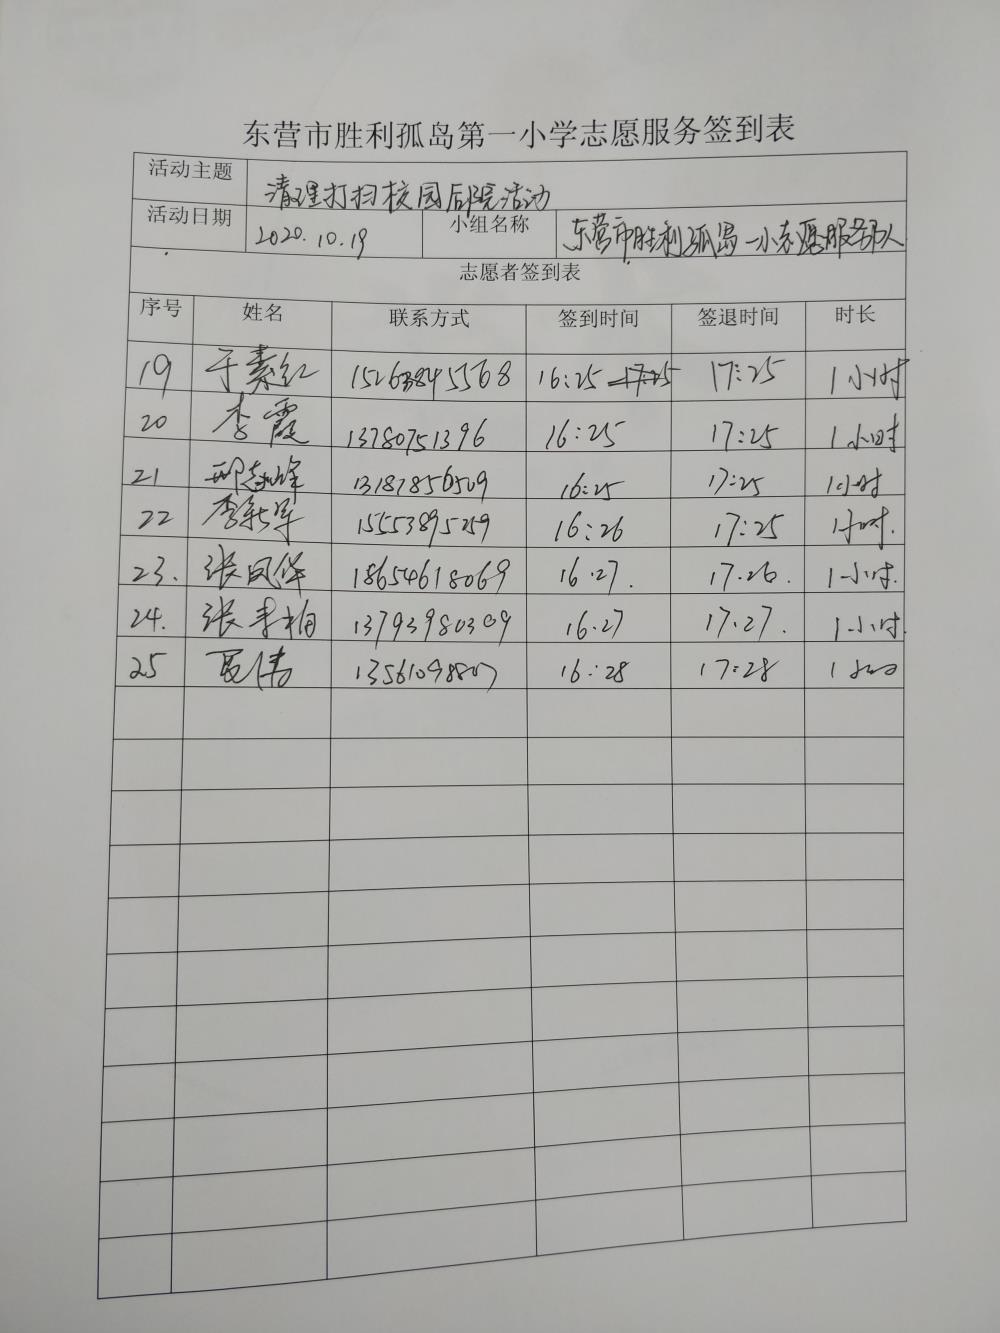 东营市胜利孤岛第一小学志愿服务签到表
活动主题 清理打扫校园后院活动
活动日期 2020.10.19 小组名称 东营市胜利孤岛一小志愿服务队
志愿者签到表
序号 姓名 联系方式 签到时间 签退时间 时长
19 于素红 15263845568 16:25 17:25 17:25 1小时
20 李霞 13780751396 16:25 17:25 1小时
21 13181856509 16:25 17:25 1小时
22 李新军 15553895259 16:26 17:25 1小时.
23. 张凤华 18654618069 16.27. 17.26. 1小时.
24. 张孝相 13793980309 16.27 17.27. 1小时.
25 16:28 17:28 1